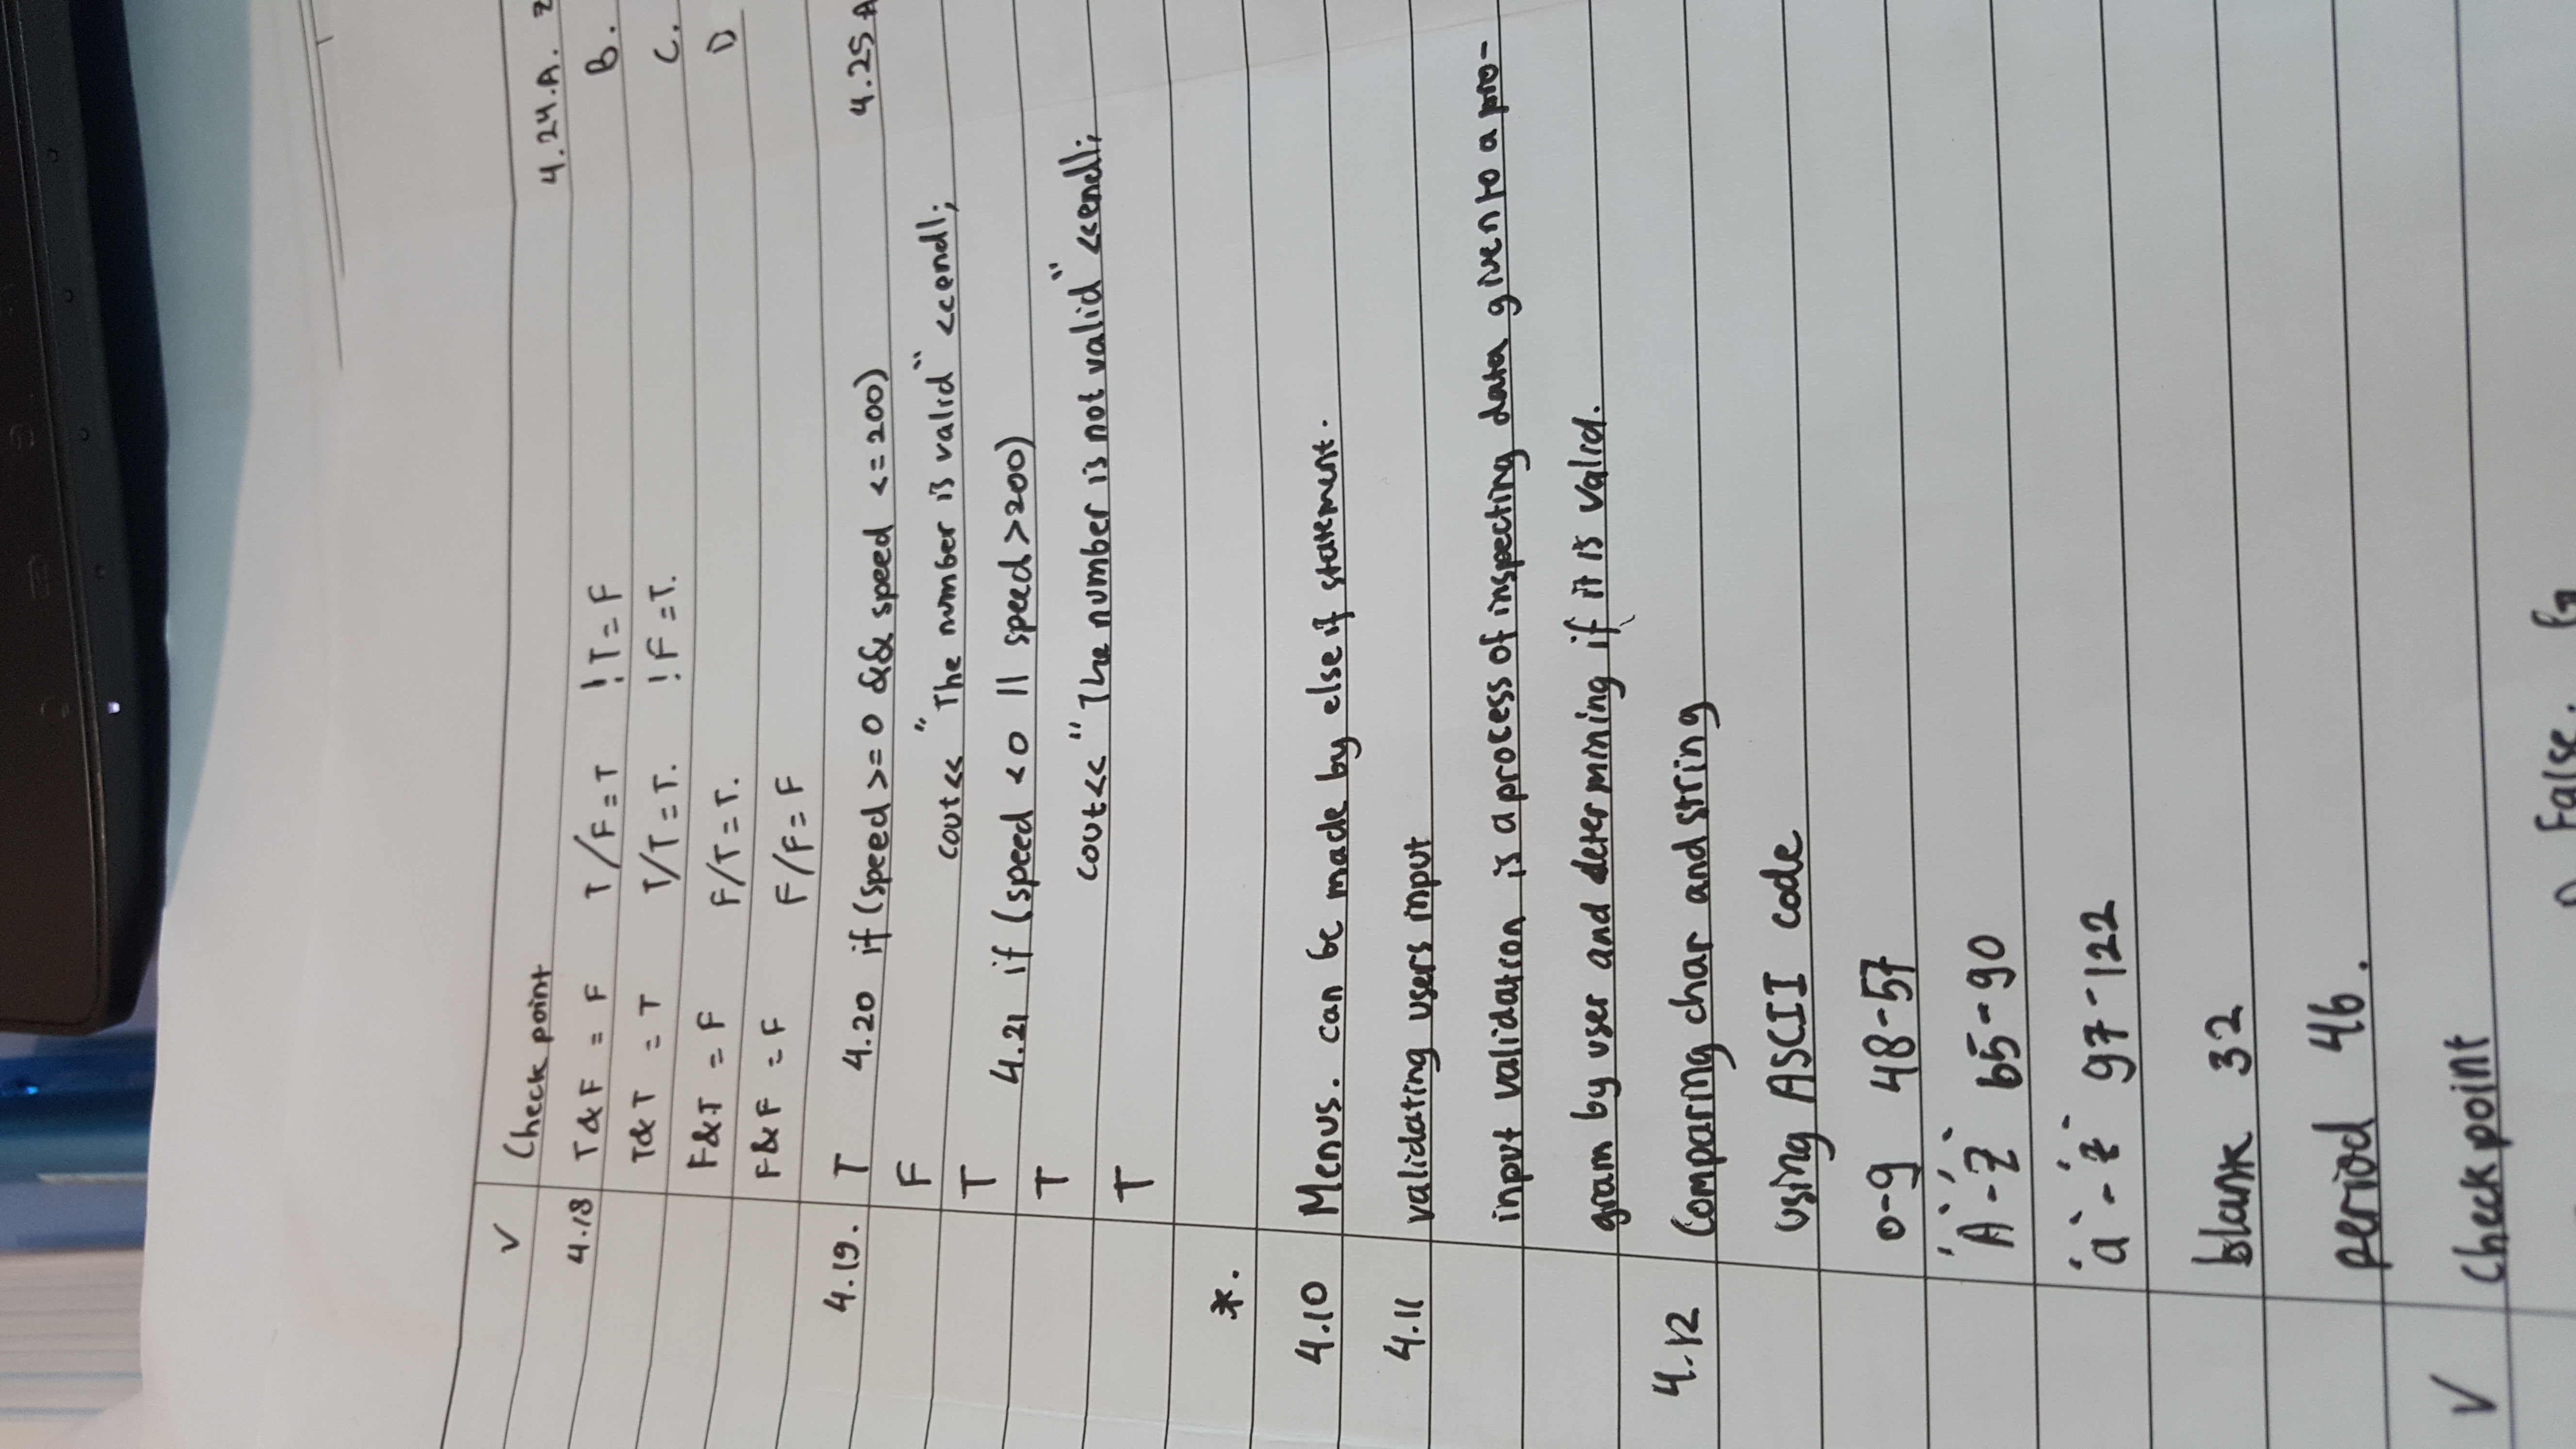 ✓ Check point
4.18 T & F = F T/F = T !T = F
T & T = T T/T = T. !F = T.
F & T = F F/T = T.
F & F = F F/F = F
4.19. T 4.20 if (speed >= 0 && speed <= 200)
F cout<< "The number is valid" <<endl;
T 4.21 if (speed <0 || speed >200)
T cout<< "The number is not valid" <<endl;
T
*.
4.10 Menus. can be made by else if statement.
4.11 validating users input
input validation is a process of inspecting data given to a pro-
gram by user and determining if it is valid.
4.12 Comparing char and string
using ASCII code
0-9 48-57
'A'-'Z' 65-90
'a'-'z' 97-122
blank 32
period 46.
✓ Check point
False.
4.24.A.
B.
C.
D
4.25 A